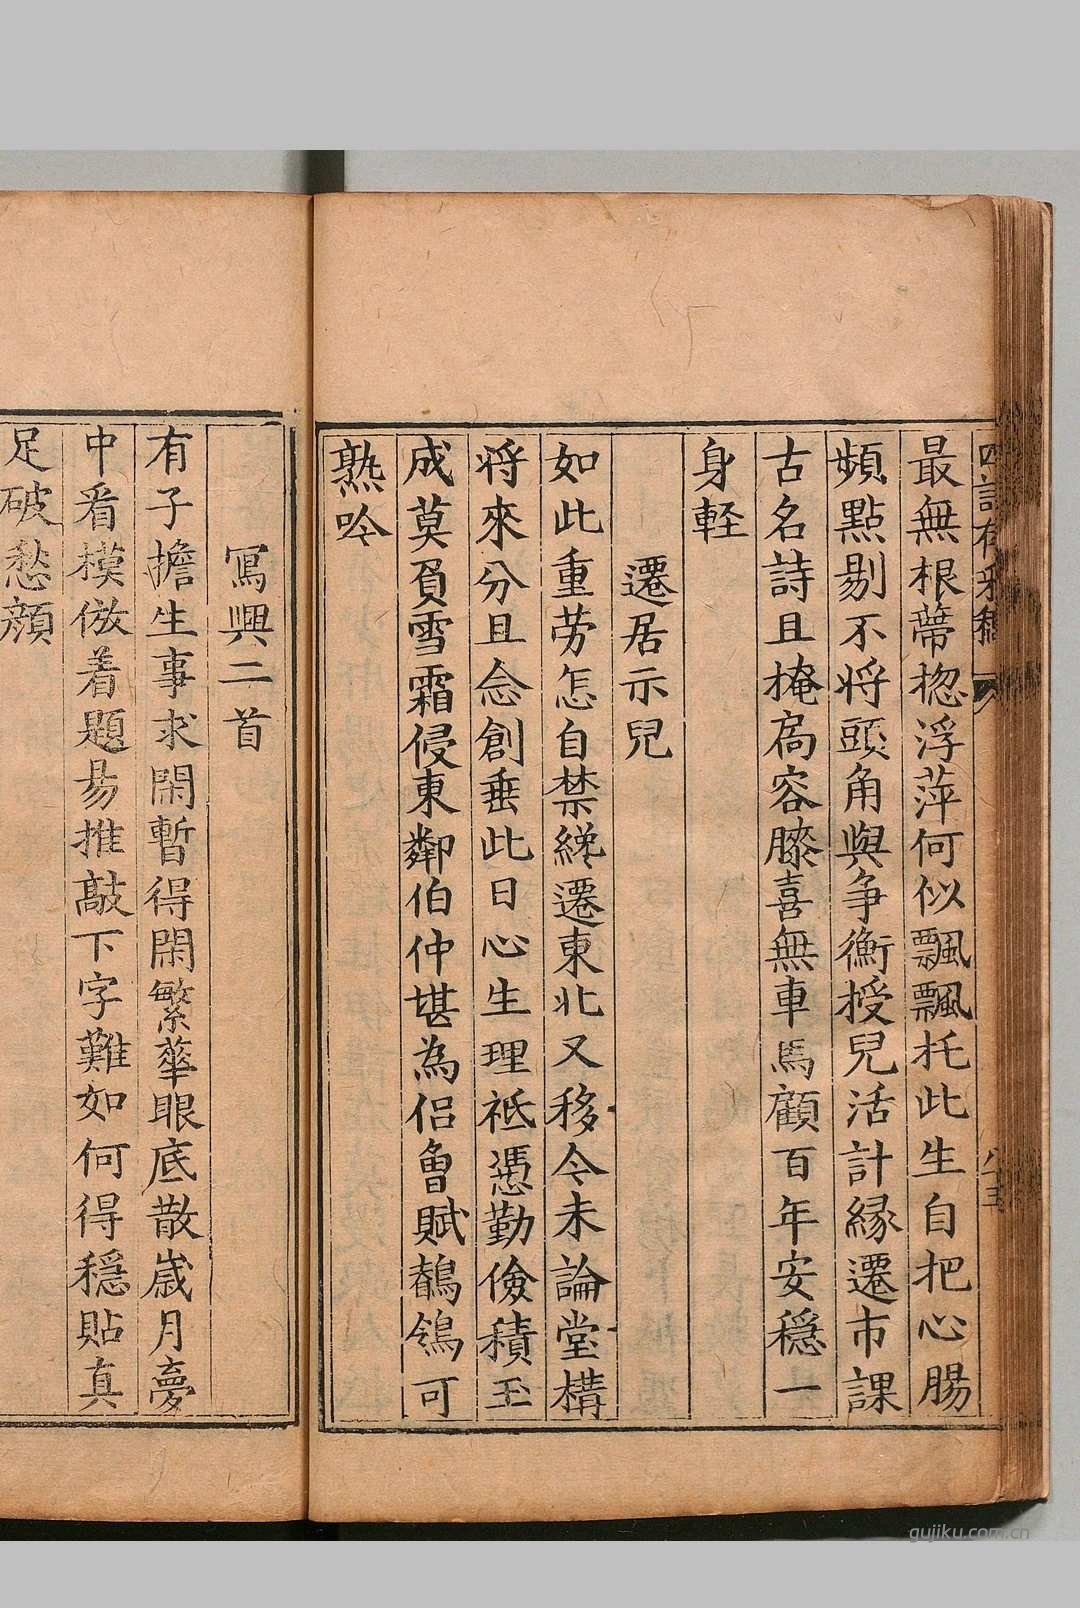 最無根蒂㧾浮萍何似飄飄托此生自把心腸
頻點剔不将頭角與争衡授兒活計縁遷市課
古名詩且掩扃容膝喜無車馬顧百年安穏一
身軽
遷居示兒
如此重劳怎自禁纔遷東北又移今未論堂構
将來分且念創垂此日心生理祗憑勤儉積玉
成莫負雪霜侵東鄰伯仲堪為侣魯賦鶺鴒可
熟吟
寫興二首
有子擔生事求閑暫得閑繁華眼底散歲月夢
中看模倣着題易推敲下字難如何得穏貼真
足破愁顔
gujiku.com.cn